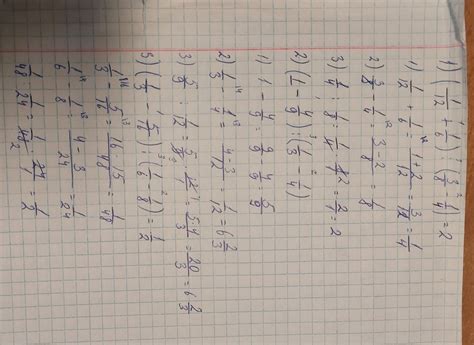 1) (1/12 + 1/6) : (3/8 - 1/4) = 2
1) 1/12 + 1/6 = 1+2/12 = 3/12 = 1/4
2) 3/8 - 1/4 = 3-2/8 = 1/8
3) 1/4 : 1/8 = 1/4 · 8/1 = 2/1 = 2
2) (1 - 4/9) : (1/3 - 1/4)
1) 1 - 4/9 = 9/9 - 4/9 = 5/9
2) 1/3 - 1/4 = 4-3/12 = 1/12 = 6 2/3
3) 5/9 : 1/12 = 5/9 · 12/1 = 5·4/3 = 20/3 = 6 2/3
5) (1/3 - 5/16) : (1/6 - 1/8) = 1/2
1/3 - 5/16 = 16-15/48 = 1/48
1/6 - 1/8 = 4-3/24 = 1/24
1/48 : 1/24 = 1/48 · 24/1 = 1/2